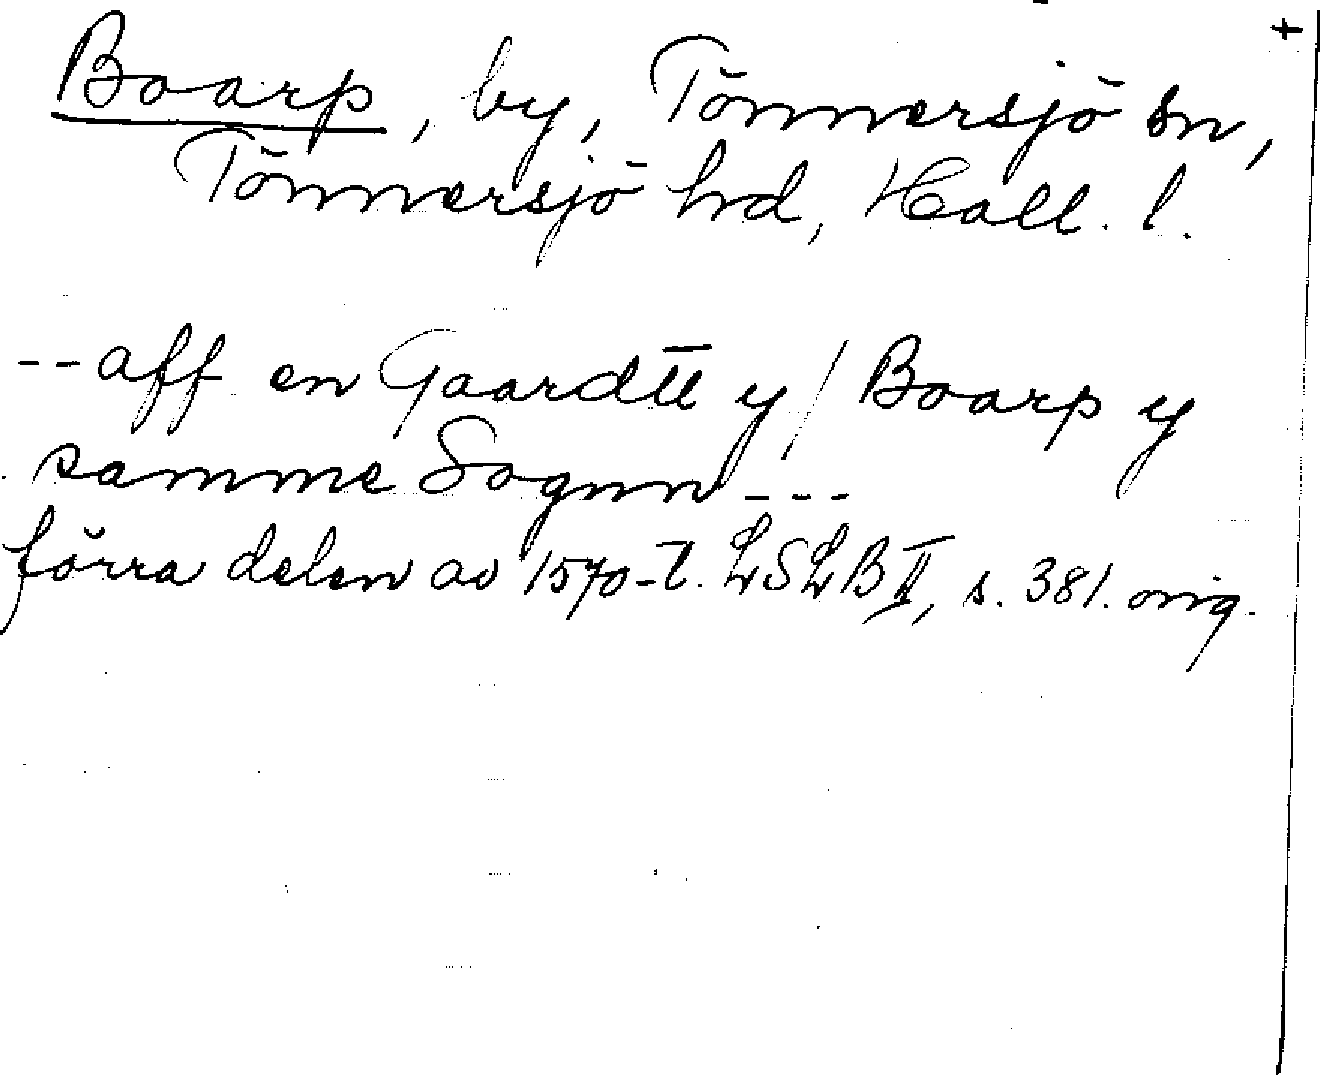 +
Boarp, by, Tönnersjö sn,
Tönnersjö hrd, Hall. l.
-- aff en Gaardtt y / Boarp y
samme Sognn ---
förra delen av 1570-t. LSLB II, s. 381. orig.